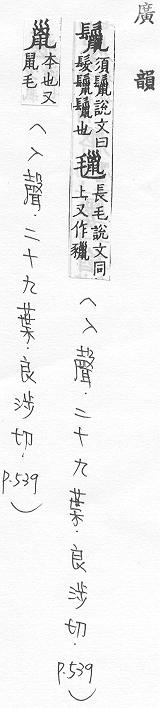 廣韻
鬣 須鬣說文曰
髮鬣鬣也
長毛說文同
上又作獵
(入聲.二十九葉.良涉切.p.539)
巤 本也又
鼠毛
(入聲.二十九葉.良涉切.p.539)